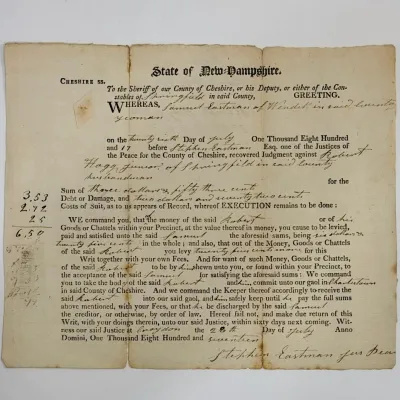 State of New-Hampshire.
CHESHIRE SS.
To the Sheriff of our County of Cheshire, or his Deputy, or either of the Con-
stables of Springfield in said County, GREETING.
WHEREAS, Samuel Eastman of Wendel in said County
yeoman
on the twenty sixth Day of July One Thousand Eight Hundred
and 17 before Stephen Eastman Esq. one of the Justices of
the Peace for the County of Cheshire, recovered Judgment against Robert
Hogg junior of Springfield in said County
husbandman for the
Sum of three dollars & fifty three cent
Debt or Damage, and two dollars and seventy two cents
Costs of Suit, as to us appears of Record, whereof EXECUTION remains to be done:
3,53
2,72
25
6,50
WE command you, that the money of the said Robert or of his
Goods or Chattels within your Precinct, at the value thereof in money, you cause to be levied,
paid and satisfied unto the said Samuel the aforesaid sums, being six dollars &
twenty five cents in the whole; and also, that out of the Money, Goods or Chattels
of the said Robert you levy twenty five cents more for this
Writ together with your own Fees. And for want of such Money, Goods or Chattels
of the said Robert to be by him shewn unto you, or found within your Precinct, to
the acceptance of the said Samuel for satisfying the aforesaid sums: We command
you to take the body of the said Robert and him commit unto our gaol in Charlestown
in said County of Cheshire. And we command the Keeper thereof accordingly to receive the
said Robert into our said gaol, and him safely keep until he pay the full sums
above mentioned, with your Fees, or that he be discharged by the said Samuel
the creditor, or otherwise, by order of law. Hereof fail not, and make due return of this
Writ, with your doings therein, unto our said Justice, within sixty days next coming. Wit-
ness our said Justice at Croydon the 28th Day of July Anno
Domini, One Thousand Eight Hundred and seventeen
Stephen Eastman Jus Peace